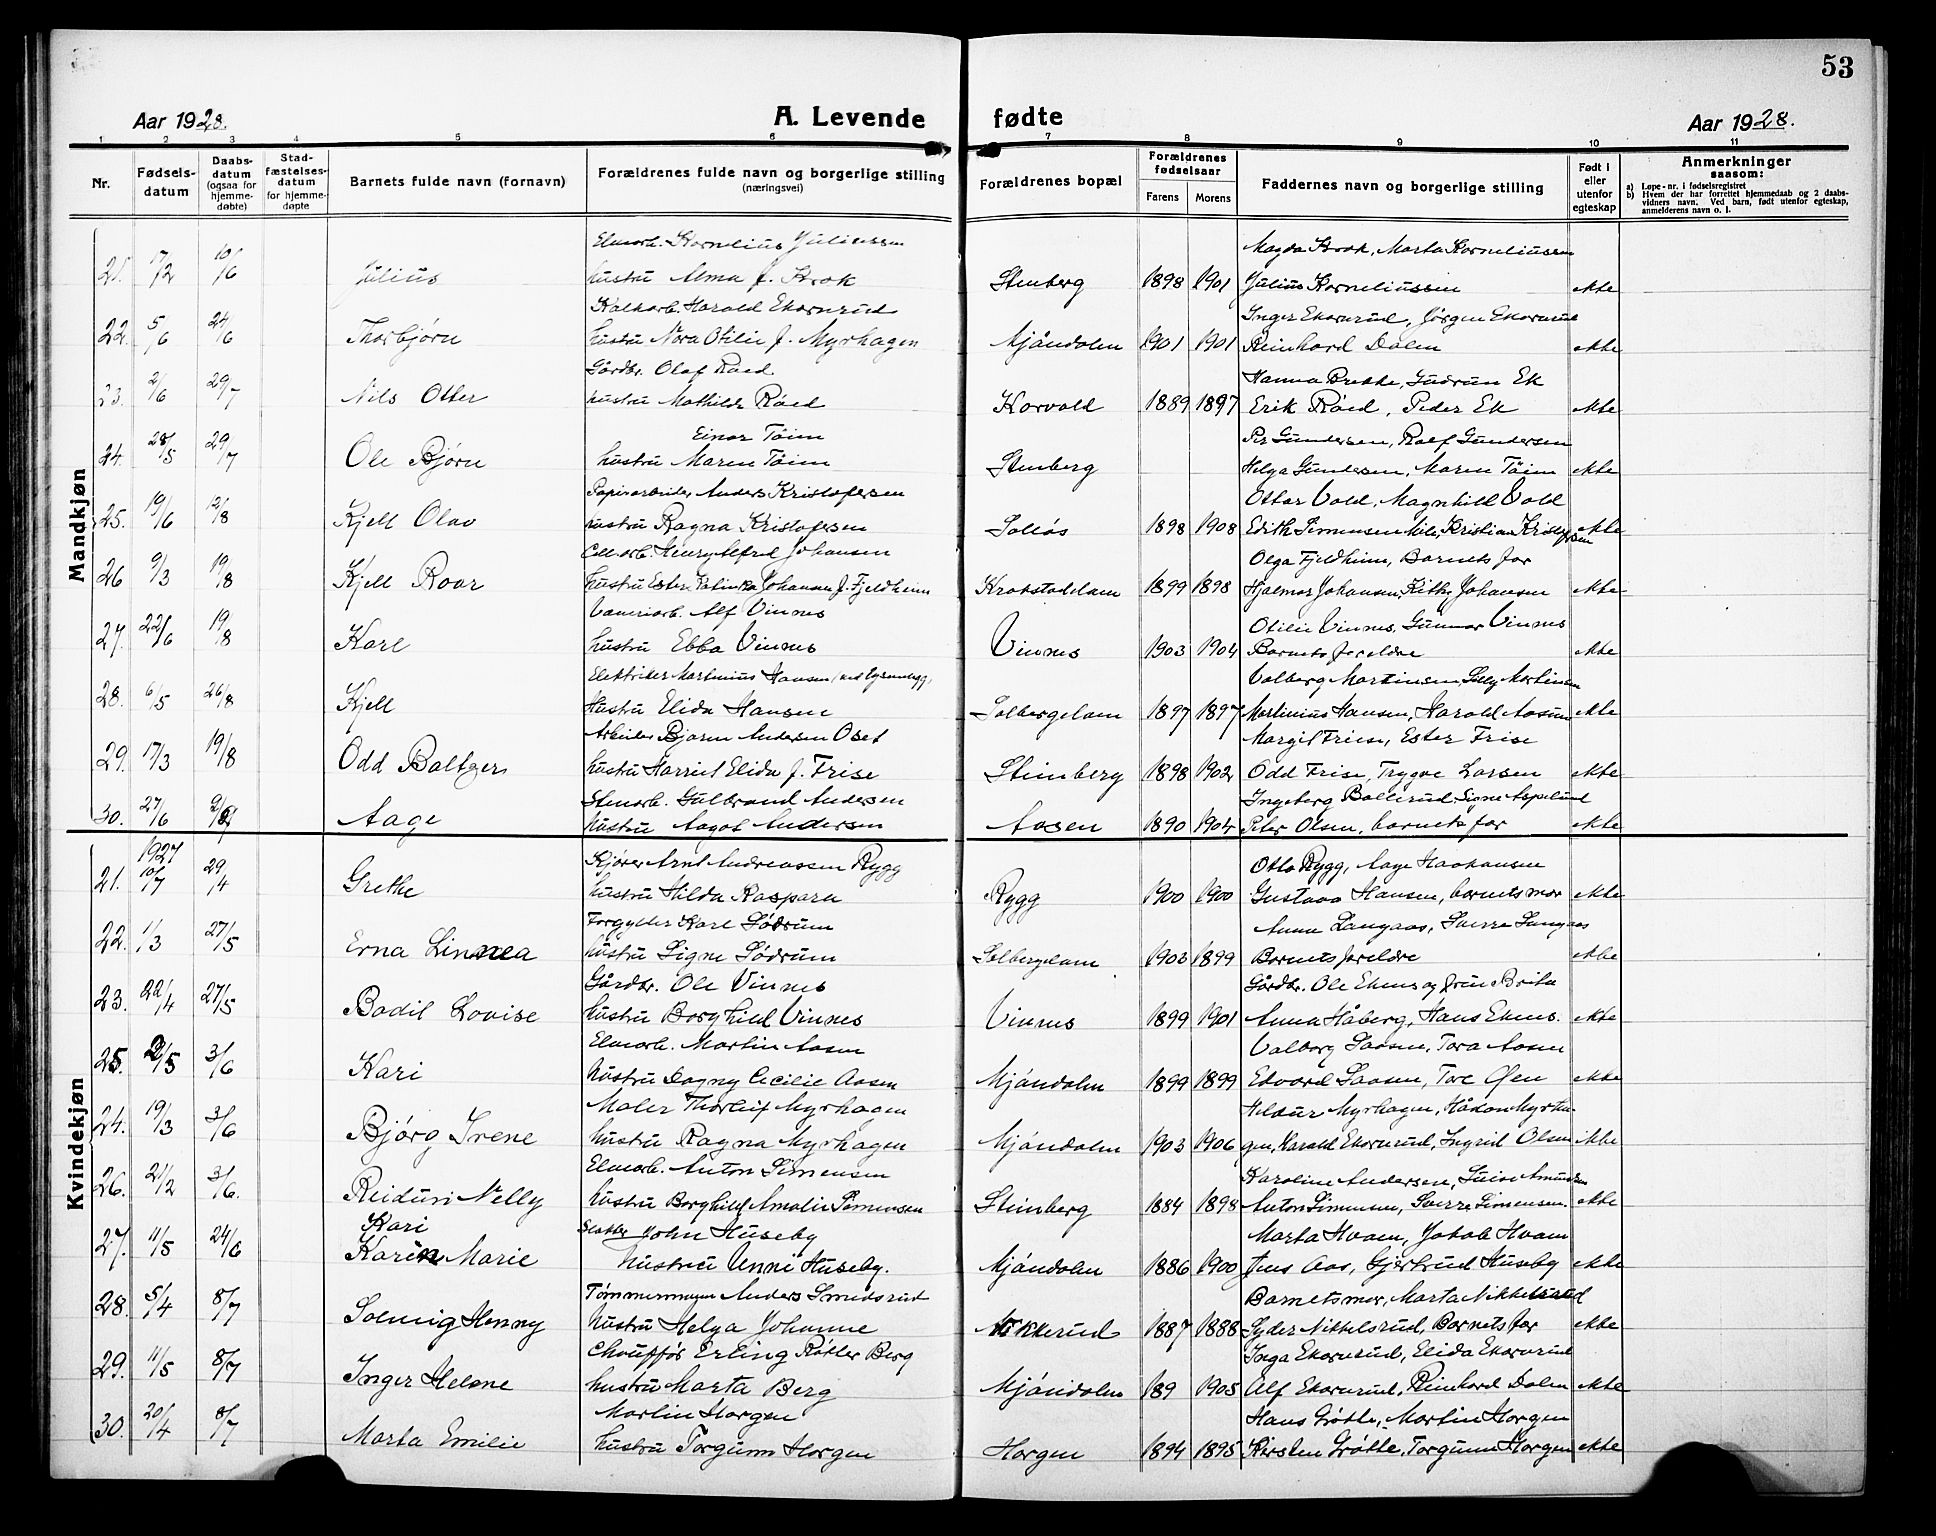 53
Aar 1928.
A. Levende
fødte
Aar 1928.
1 2 3 4 5 6 7 8 9 10 11
Nr.
Fødsels-
datum
Daabs-
datum
(ogsaa for
hjemme-
døbte)
Stad-
fæstelses-
datum
for hjemme-
døpte
Barnets fulde navn (fornavn)
Forældrenes fulde navn og borgerlige stilling
(næringsvei)
Forældrenes bopæl
Forældrenes
fødselsaar
Farens
Morens
Faddernes navn og borgerlige stilling
Født i
eller
utenfor
egteskap
Anmerkninger
saasom:
a) Løpe-nr. i fødselsregistret
b) Hvem der har forrettet hjemmedaab og 2 daabs-
vidners navn. Ved barn, født utenfor egteskap,
anmelderens navn o. l.
Mandkjøn
Kornelius Juliussen Magda Krok, Marta Korneliussen
21. 17/2 10/6 Julius hustru Alma f. Krok Stenberg 1898 1901 Julius Korneliussen ekte
Kalkarb. Harald Ekornrud Inger Ekornrud, Jørgen Ekornrud
22. 5/6 24/6 Thorbjørn hustru Nora Otilie f. Myrhagen Mjøndalen 1901 1901 Reinhard Dalen ekte
Gårdbr. Olaf Røed Hanna Brekke, Gudrun Ek
23. 2/6 29/7 Nils Otter hustru Mathilde Røed Korvald 1889 1897 Erik Røed, Peder Ek ekte
Einar Tøim Per Gundersen, Ralf Gundersen
24. 28/5 29/7 Ole Bjørn hustru Maren Tøim Stenberg Helga Gundersen, Maren Tøim ekte
Papirarbeider Anders Kristofersen Ottar Vold, Magnhild Vold
25. 19/6 12/8 Kjell Olav hustru Ragna Kristofersen Solløs 1898 1908 Edith Simensen Mile, Kristian Kristofersen ekte
Cell.arb. Henry Alfred Johansen Olga Fjeldheim, Barnets far
26 9/3 19/8 Kjell Roar hustru Ester Palinka Johansen f. Fjeldheim Krokstadelven 1899 1898 Hjalmar Johansen, Johansen ekte
Alf Vinnes Otilie Vinnes, Gunnar Vinnes
27. 22/6 19/8 Karl hustru Ebba Vinnes Vinnes 1903 1904 Barnets foreldre ekte
Elektriker Martinius Hansen Valborg Martinsen, Lilly Martinsen
28. 6/5 26/8 Kjell Hustru Elida Hansen Solbergelven 1897 1897 Martinius Hansen, Harald Aasen ekte
Arbeider Bjarne Andersen Oset Margit Friise, Ester Frise
29. 17/3 19/8 Odd Baltzer hustru Harriet Elida f. Frise Steinberg 1898 1902 Odd Frise, Trygve Larsen ekte
Gulbrand Andersen Ingeborg Ballerud, Signe Aspelund
30. 27/6 Aage hustru Aagot Andersen Aasen 1890 1904 Peter Olsen, barnets far ekte
Kvindekjøn
1927 Kjører Arnt Andreassen Rygg Otto Rygg, Aage Haakansen
21. 10/7 29/4 Grethe hustru Hilda Kaspara Rygg 1900 1900 Gustava Hansen, barnets mor ekte
Forgylder Karl Sødrum Anna Langaas, Sverre Langaas
22. 1/3 27/5 Erna Linnea hustru Signe Sødrum Solbergelven 1903 1899 Barnets foreldre ekte
Gårdbr. Ole Vinnes Gårdbr. Ole Ekenes og frue Brita
23. 22/4 27/5 Bodil Lovise hustru Borghild Vinnes Vinnes 1899 1901 Anna Håberg, Hans Ekenes. ekte
Martin Aasen Valborg Aasen, Tora Aasen
25. 2/5 3/6 Kari hustru Dagny Cecilie Aasen Mjøndalen 1899 1899 Edvard Aasen, Tore Øen ekte
Maler Thorleif Myrhagen Heldur Myrhagen, Håkon Myrha-
24. 19/3 3/6 Bjørg Irene hustru Ragna Myrhagen Mjøndalen 1903 1906 gen, Harald Ekornrud, Ingrid Olsen ekte
Anton Simensen Karoline Andersen, Luise Amundsen
26. 21/2 3/6. Reidun Nelly hustru Borghild Amalie Simensen Steinberg 1884 1898 Anton Simensen, Sverre Simensen. ekte
Kari John Huseby Marta Hvam, Jakob Hvam
27. 11/5 24/6 Karin Marie hustru Unni Huseby. Mjøndalen 1886 1900 Jens Aas, Gjertrud Huseby ekte
Tømmermann Anders Smedsrud Barnets mor, Marta Nikkelsrud
28. 5/4 8/7 Solveig Henny hustru Helga Johanne 1887 1888 Syder Nikkelsrud, Barnets far ekte
Chauffør Erling Røtter Berg Inga Ekornrud, Elida Ekornrud
29. 11/5 8/7 Inger Helene hustru Marta Berg Mjøndalen 189 1905 Alf Ekornrud, Reinhard Dalen ekte
Martin Horgen Hans Grøtte, Martin Horgen
30. 20/4 8/7 Marta Emilie hustru Torgunn Horgen Horgen 1894 1895 Kirsten Grøtte, Torgunn Horgen ekte